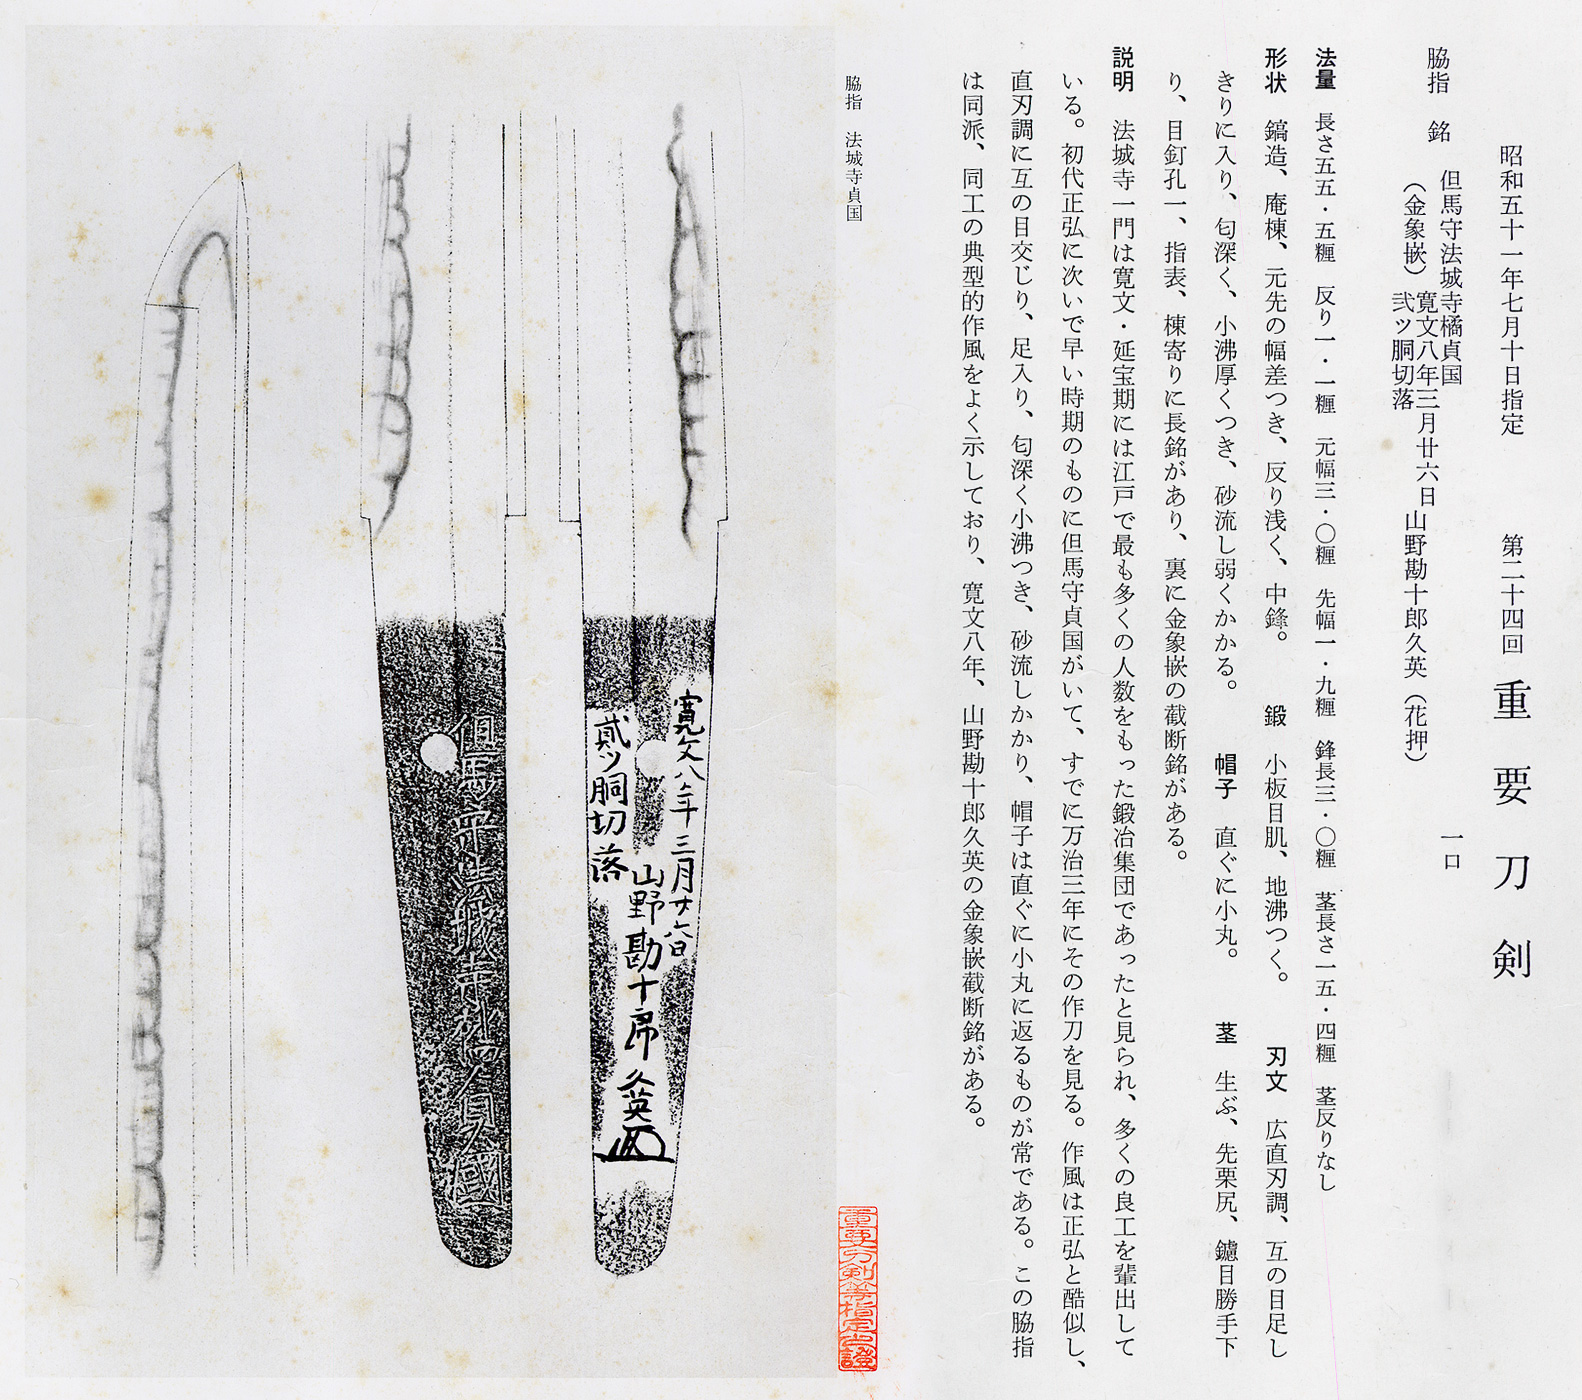 昭和五十一年七月十日指定　第二十四回　重要刀剣
脇指　銘　但馬守法城寺橘貞国　一口
（金象嵌）寛文八年三月廿六日山野勘十郎久英（花押）
弐ツ胴切落
法量　長さ五五・五糎　反り一・一糎　元幅三・〇糎　先幅一・九糎　鋒長三・〇糎　茎長さ一五・四糎　茎反りなし
形状　鎬造、庵棟、元先の幅差つき、反り浅く、中鋒。　鍛　小板目肌、地沸つく。　刃文　広直刃調、互の目足し
きりに入り、匂深く、小沸厚くつき、砂流し弱くかかる。　帽子　直ぐに小丸。　茎　生ぶ、先栗尻、鑢目勝手下
り、目釘孔一、指表、棟寄りに長銘があり、裏に金象嵌の截断銘がある。
説明　法城寺一門は寛文・延宝期には江戸で最も多くの人数をもった鍛冶集団であったと見られ、多くの良工を輩出して
いる。初代正弘に次いで早い時期のものに但馬守貞国がいて、すでに万治三年にその作刀を見る。作風は正弘と酷似し、
直刃調に互の目交じり、足入り、匂深く小沸つき、砂流しかかり、帽子は直ぐに小丸に返るものが常である。この脇指
は同派、同工の典型的作風をよく示しており、寛文八年、山野勘十郎久英の金象嵌截断銘がある。
脇指　法城寺貞国
重要刀剣等指定之證
寛文八年三月廿六日
山野勘十郎久英
貮ツ胴切落
但馬守法城寺橘貞國